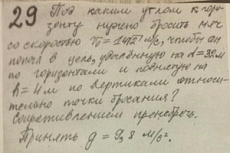 29 Под каким углом к гори-
зонту нужно бросить мяч
со скоростью м/с, чтобы он
попал в цель, удалённую на d=32м
по горизонтали и поднятую на
h=4м по вертикали относи-
тельно точки бросания?
Сопротивлением пренебречь.
Принять g=9,8 м/с².